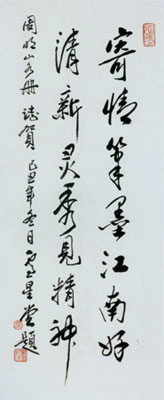 寄情笔墨江南好
清新灵秀见精神
周明山水册 志贺 己丑年冬日 星堂题